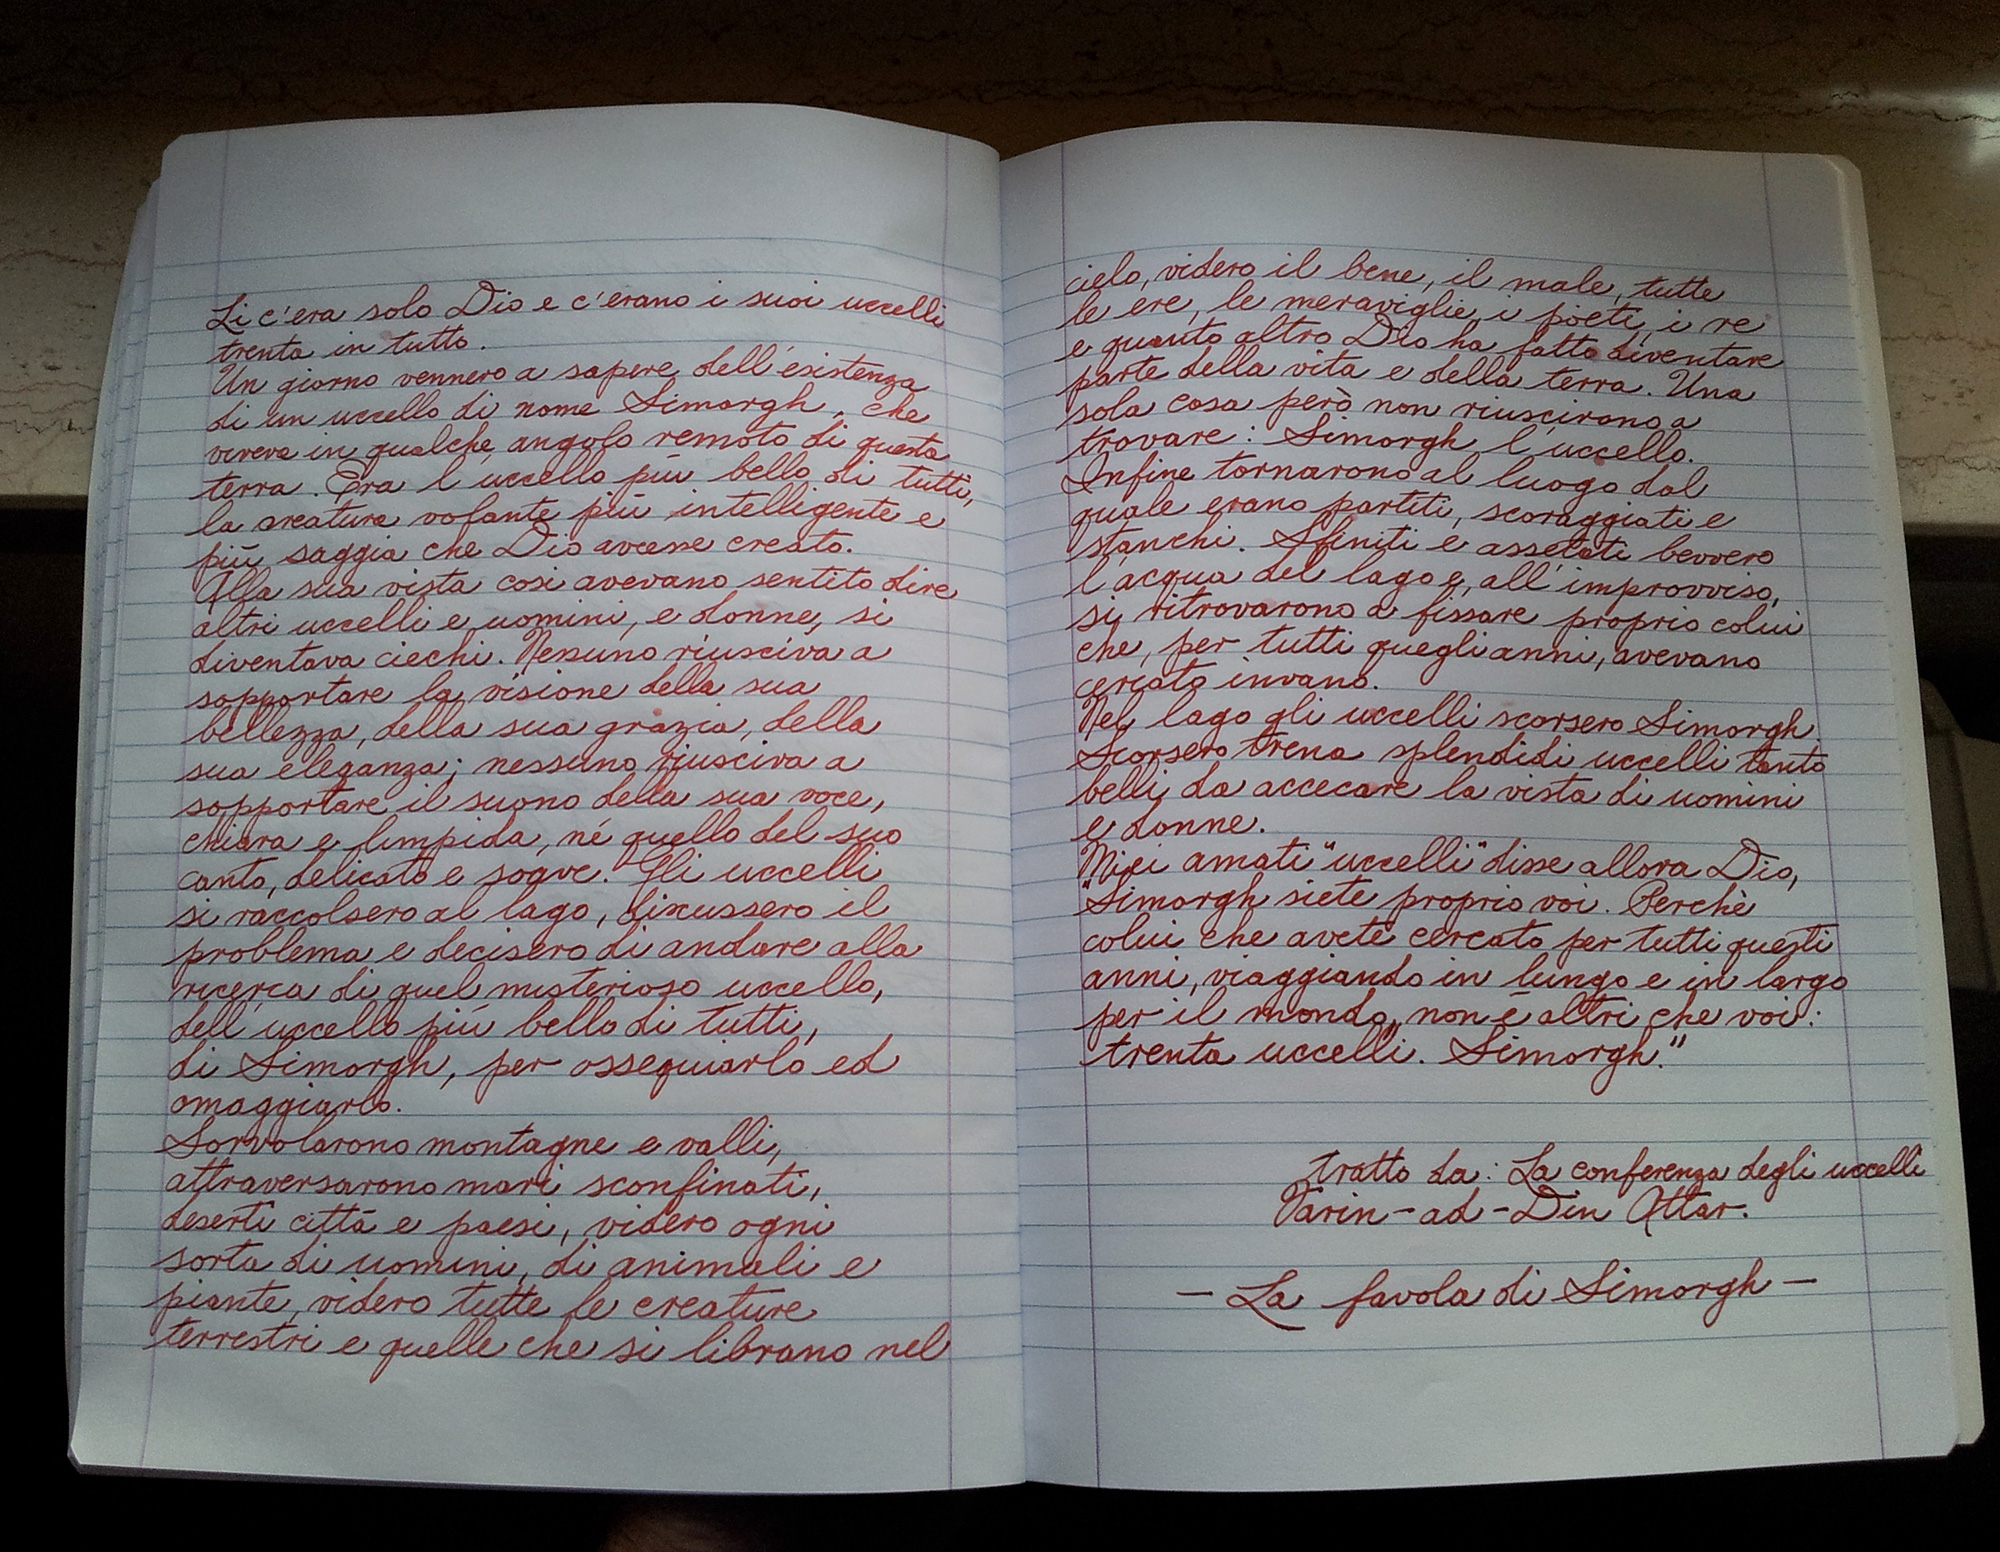 Li c'era solo Dio e c'erano i suoi uccelli
trenta in tutto.
Un giorno vennero a sapere dell'esistenza
di un uccello di nome Simorgh, che
viveva in qualche angolo remoto di questa
terra. Era l'uccello più bello di tutti,
la creatura volante più intelligente e
più saggia che Dio avesse creato.
Alla sua vista così avevano sentito dire
altri uccelli e uomini, e donne, si
diventava ciechi. Nessuno riusciva a
sopportare la visione della sua
bellezza, della sua grazia, della
sua eleganza; nessuno riusciva a
sopportare il suono della sua voce,
chiara e limpida, né quello del suo
canto, delicato e soave. Gli uccelli
si raccolsero al lago, discussero il
problema e decisero di andare alla
ricerca di quel misterioso uccello,
dell'uccello più bello di tutti,
di Simorgh, per ossequiarlo ed
omaggiarlo.
Sorvolarono montagne e valli,
attraversarono mari sconfinati,
deserti città e paesi, videro ogni
sorta di uomini, di animali e
piante, videro tutte le creature
terrestri e quelle che si librano nel
cielo, videro il bene, il male, tutte
le ere, le meraviglie, i poeti, i re
e quanto altro Dio ha fatto diventare
parte della vita e della terra. Una
sola cosa però non riuscirono a
trovare: Simorgh l'uccello.
Infine tornarono al luogo dal
quale erano partiti, scoraggiati e
stanchi. Sfiniti e assetati bevvero
l'acqua del lago e, all'improvviso,
si ritrovarono a fissare proprio colui
che, per tutti quegli anni, avevano
cercato invano.
Nel lago gli uccelli scorsero Simorgh.
Scorsero trena splendidi uccelli tanto
belli da accecare la vista di uomini
e donne.
Miei amati "uccelli" disse allora Dio,
"Simorgh siete proprio voi. Perchè
colui che avete cercato per tutti questi
anni, viaggiando in lungo e in largo
per il mondo, non è altri che voi:
trenta uccelli. Simorgh."
tratto da: La conferenza degli uccelli
Farin-ad-Din Attar.
- La favola di Simorgh -